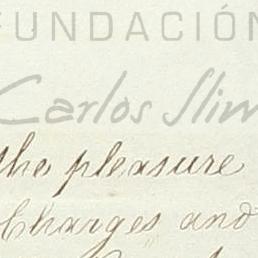 FUNDACIÓN
Carlos Slim
the pleasure
Charges and